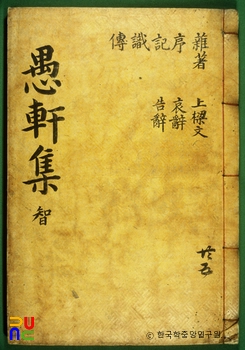 雜著
序
記
識
傳
上樑文
哀辭
告辭
愚軒集
智
共五
한국학중앙연구원